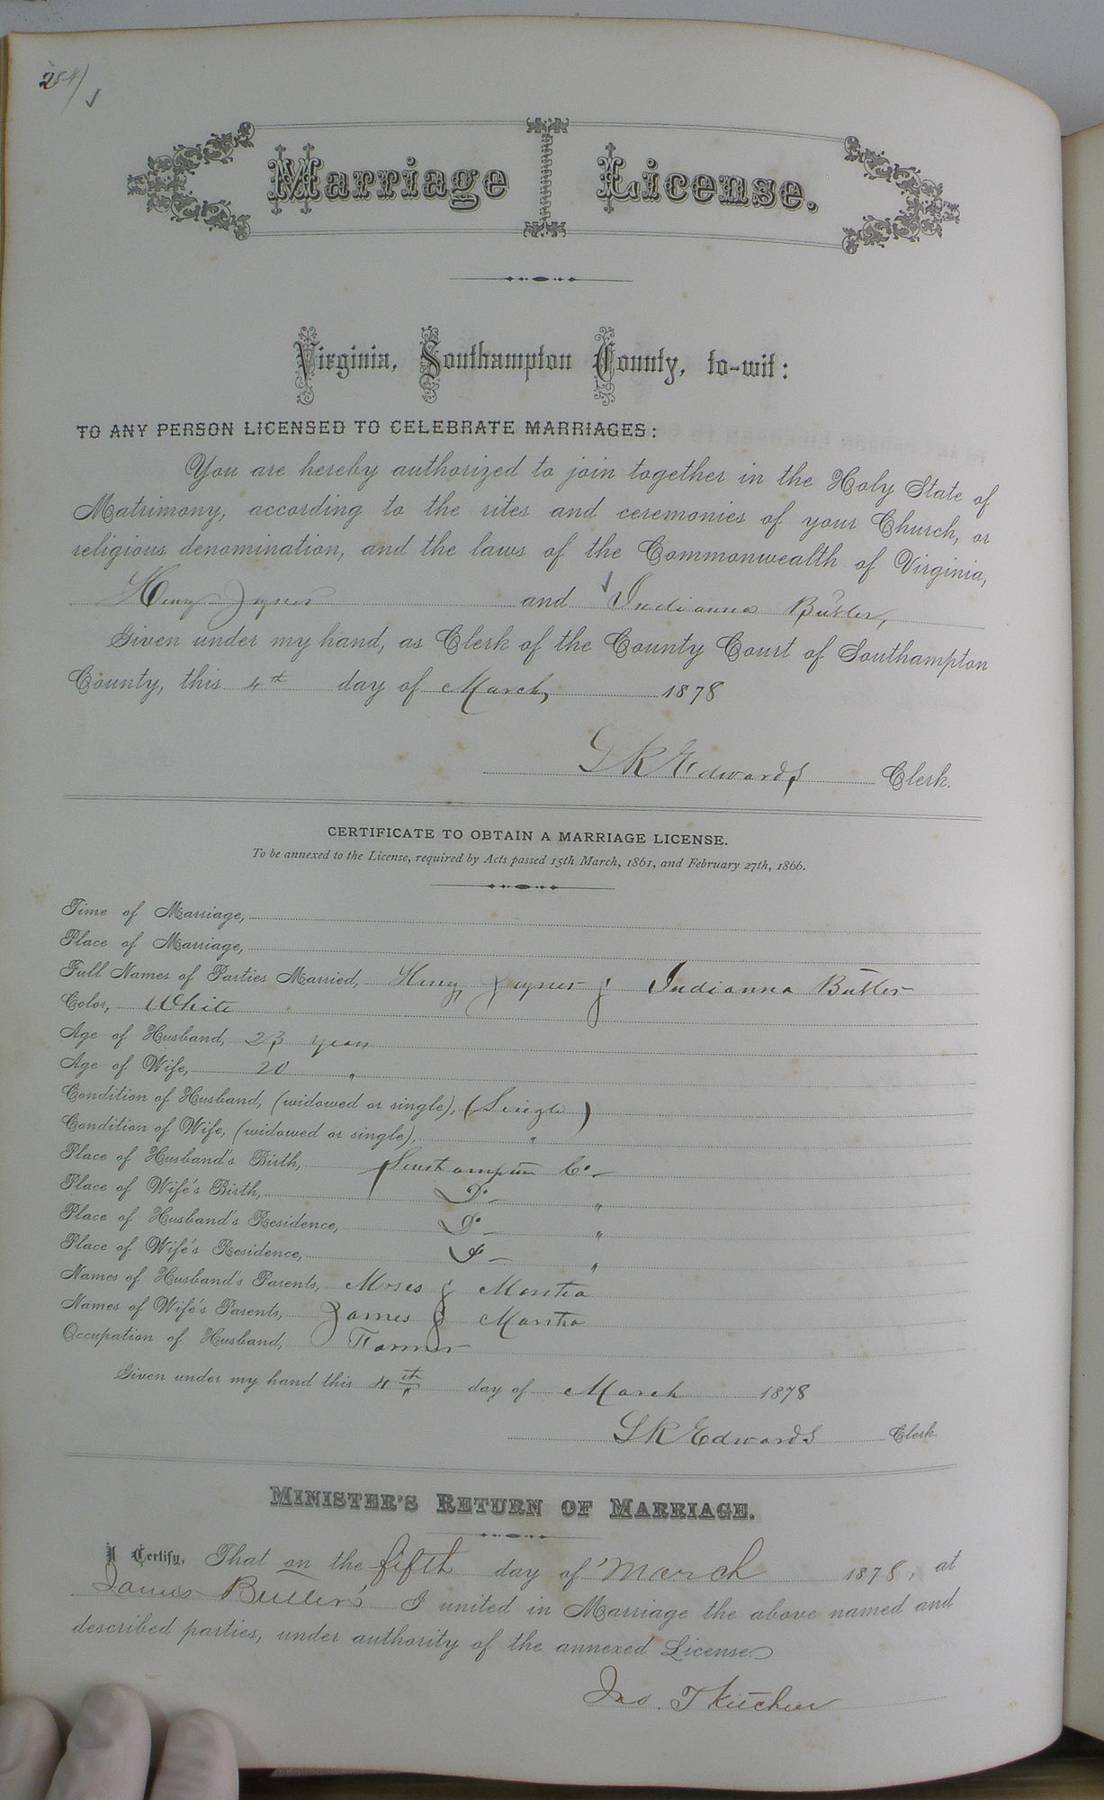 254/
Marriage License.
Virginia, Southampton County, to-wit:
TO ANY PERSON LICENSED TO CELEBRATE MARRIAGES:
You are hereby authorized to join together in the Holy State of
Matrimony, according to the rites and ceremonies of your Church, or
religious denomination, and the laws of the Commonwealth of Virginia,
Henry Joyner and Indianna Butler,
Given under my hand, as Clerk of the County Court of Southampton
County, this 4th day of March, 1878
L R Edwards Clerk.
CERTIFICATE TO OBTAIN A MARRIAGE LICENSE.
To be annexed to the License, required by Acts passed 15th March, 1861, and February 27th, 1866.
Time of Marriage,
Place of Marriage,
Full Names of Parties Married, Henry Joyner & Indianna Butler
Color, White
Age of Husband, 23 years
Age of Wife, 20 "
Condition of Husband, (widowed or single), (Single)
Condition of Wife, (widowed or single), "
Place of Husband's Birth, Southampton Co
Place of Wife's Birth, Do "
Place of Husband's Residence, Do "
Place of Wife's Residence, Do "
Names of Husband's Parents, Moses & Martha
Names of Wife's Parents, James & Martha
Occupation of Husband, Farmer
Given under my hand this 4th day of March 1878
L R Edwards Clerk.
MINISTER'S RETURN OF MARRIAGE.
I Certify, That on the fifth day of March 1878, at
James Butler's I united in Marriage the above named and
described parties, under authority of the annexed License
Jno. T Kitchen